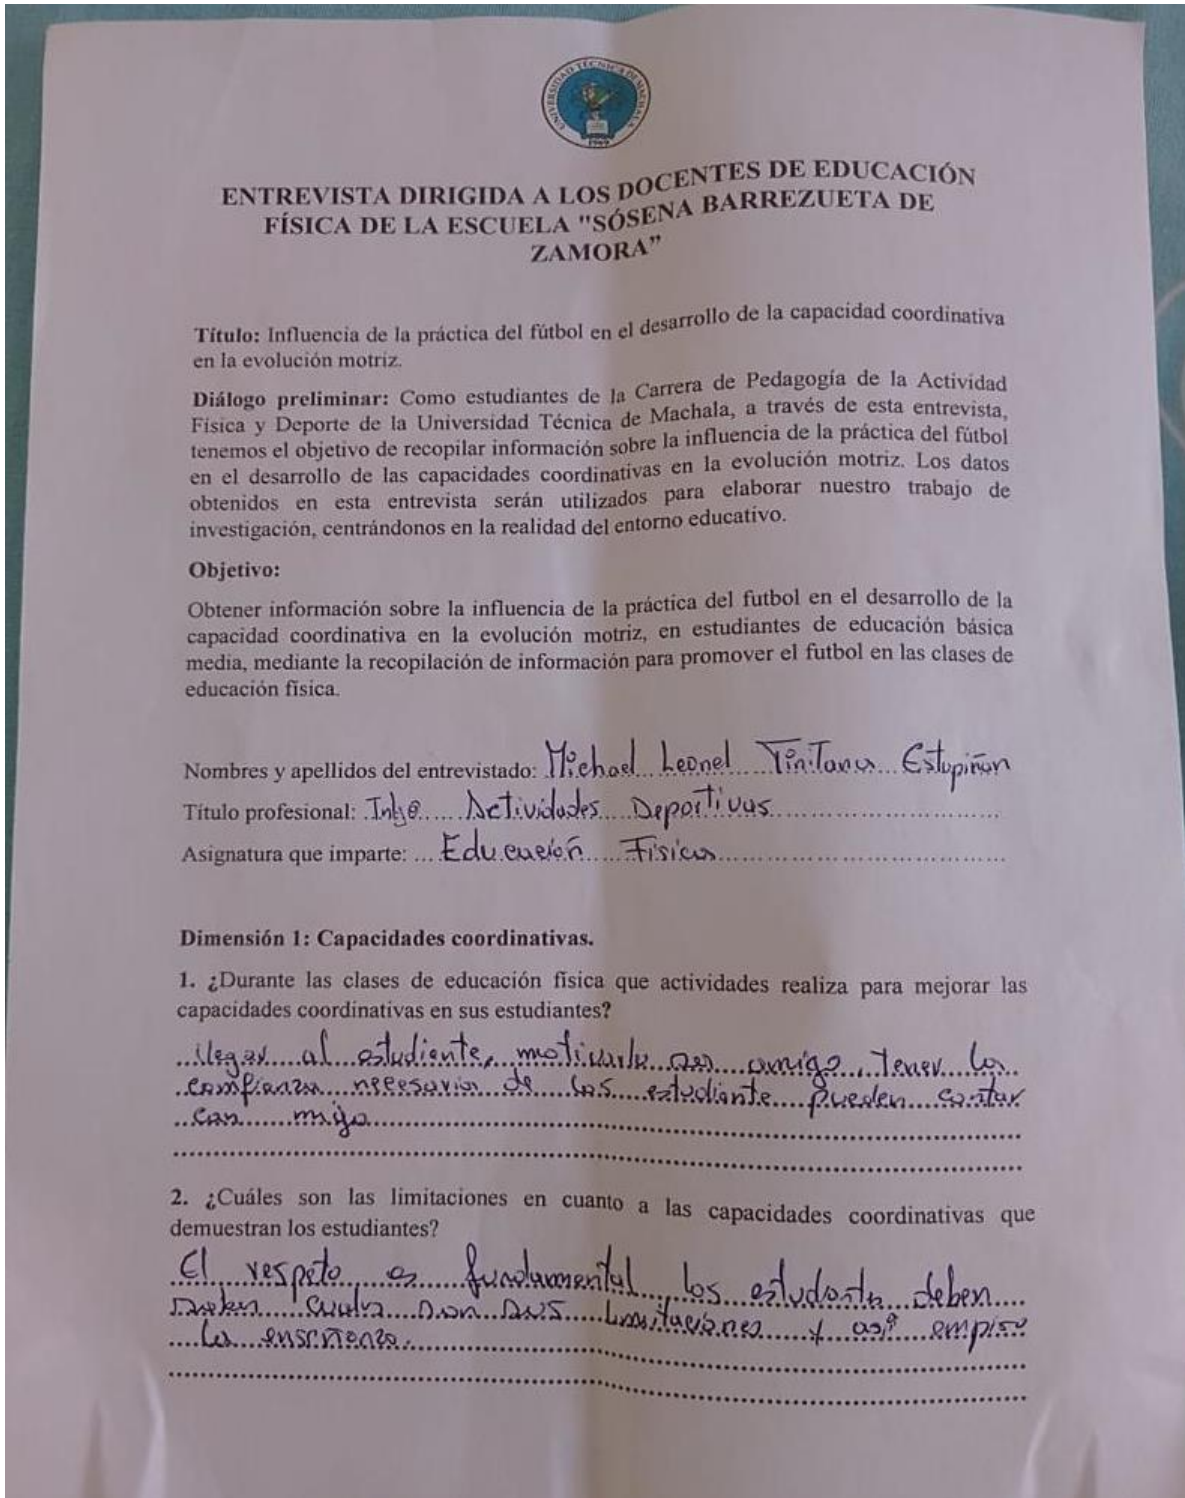 UNIVERSIDAD TÉCNICA DE MACHALA
1969
ENTREVISTA DIRIGIDA A LOS DOCENTES DE EDUCACIÓN
FÍSICA DE LA ESCUELA "SÓSENA BARREZUETA DE
ZAMORA”
Título: Influencia de la práctica del fútbol en el desarrollo de la capacidad coordinativa
en la evolución motriz.
Diálogo preliminar: Como estudiantes de la Carrera de Pedagogía de la Actividad
Física y Deporte de la Universidad Técnica de Machala, a través de esta entrevista,
tenemos el objetivo de recopilar información sobre la influencia de la práctica del fútbol
en el desarrollo de las capacidades coordinativas en la evolución motriz. Los datos
obtenidos en esta entrevista serán utilizados para elaborar nuestro trabajo de
investigación, centrándonos en la realidad del entorno educativo.
Objetivo:
Obtener información sobre la influencia de la práctica del futbol en el desarrollo de la
capacidad coordinativa en la evolución motriz, en estudiantes de educación básica
media, mediante la recopilación de información para promover el futbol en las clases de
educación física.
Nombres y apellidos del entrevistado: Michael Leonel Tinitana Estupiñan
Título profesional: Actividades Deportivas
Asignatura que imparte: Educación Fisica
Dimensión 1: Capacidades coordinativas.
1. ¿Durante las clases de educación física que actividades realiza para mejorar las
capacidades coordinativas en sus estudiantes?
llegar al estudiante, motivarlo ser amigo, tener la
confianza necesaria de los estudiante pueden contar
con migo
2. ¿Cuáles son las limitaciones en cuanto a las capacidades coordinativas que
demuestran los estudiantes?
El respeto es fundamental, los estudiante deben
saber cuales son sus limitaciones y así empiso
la enseñanza.